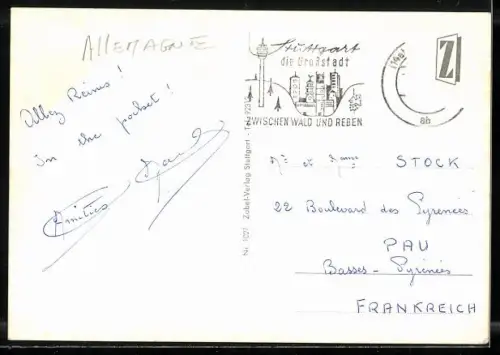 ALLEMAGNE
Allez Reims!
In the pocket!
Amitiés
Stuttgart
die Großstadt
ZWISCHEN WALD UND REBEN
8b
Z
Nr. 1027 Zobel-Verlag Stuttgart
Mr et Mme STOCK
22 Boulevard des Pyrenées
PAU
Basses-Pyrénées
FRANKREICH